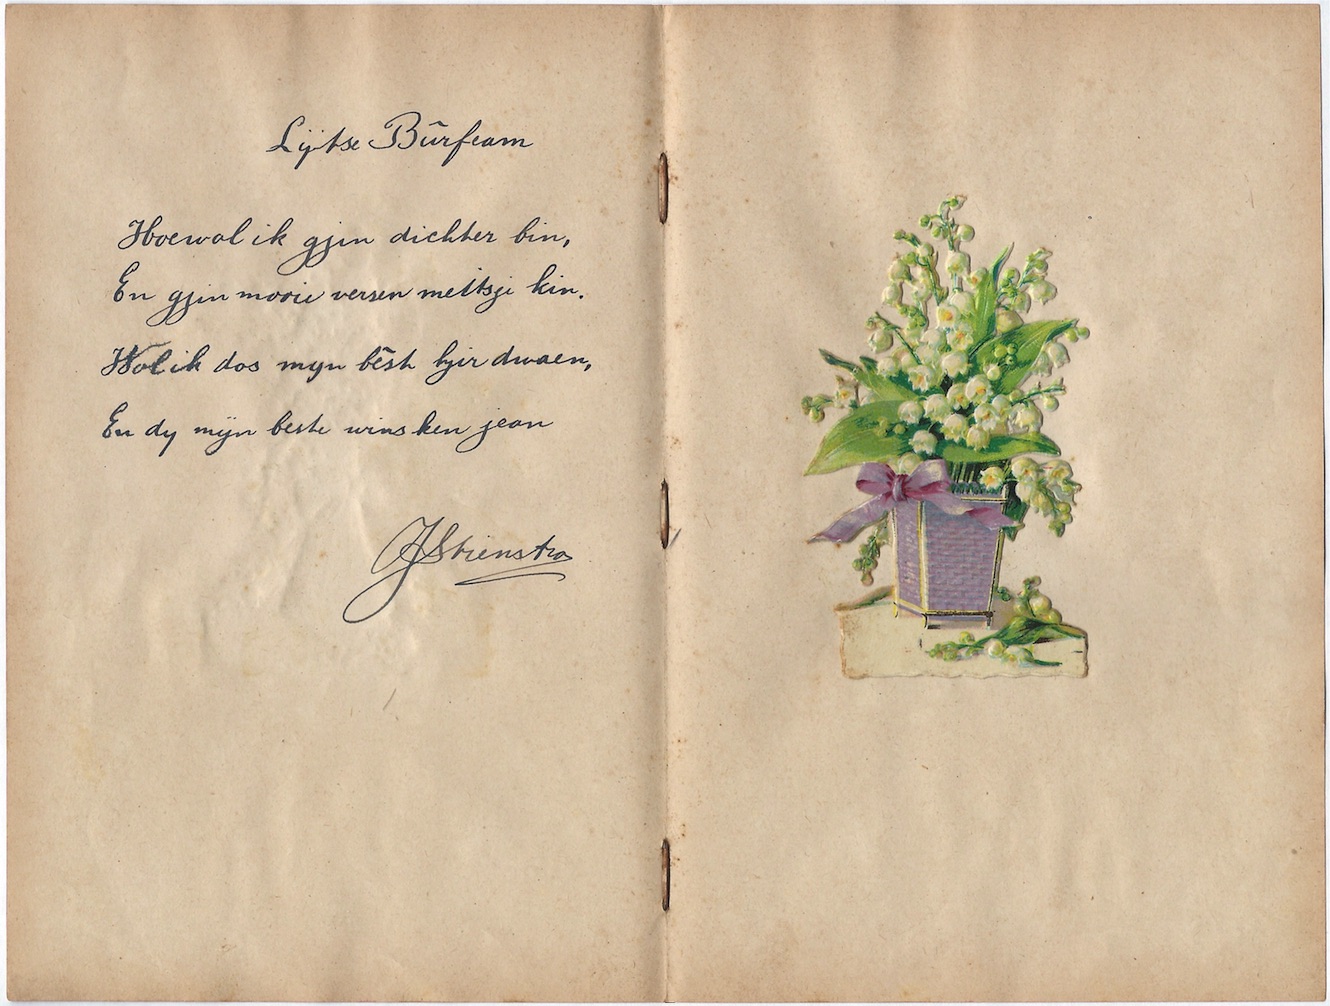 Lijtse Bûrfeam
Hoewol ik gjin dichter bin,
En gjin mooie versen meitsje kin.
Wol ik dos myn bêst hjir dwaen,
En dy mijn beste winsken jean
J Stienstra